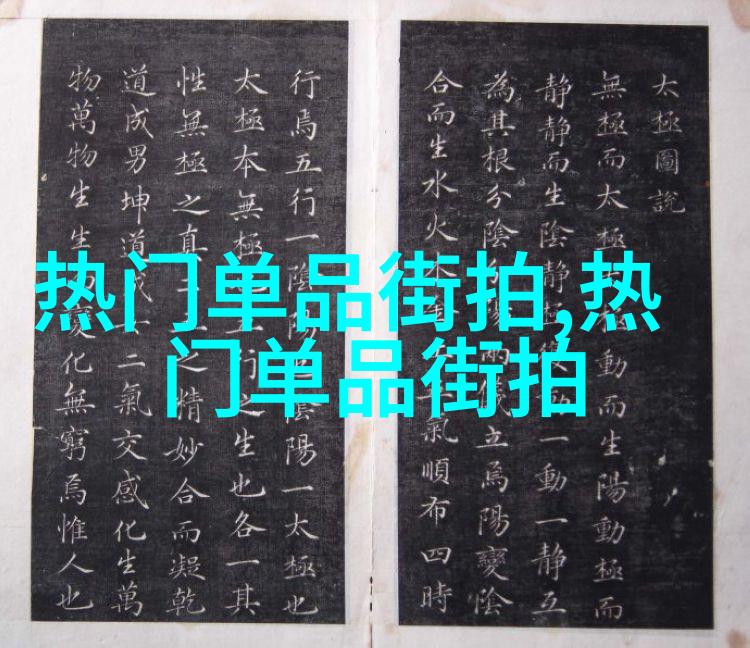 太極圖說
無極而太極極動而生陽動極而
静静而生陰静極復動一動一静互
為其根分陰分陽兩儀立焉陽變陰
合而生水火木金土氣順布四時
行焉五行一陰陽也陰陽一太極也
太極本無極也行之生也各一其
性無極之真二之精妙合而凝乾
道成男坤道成二氣交感化生萬
物萬物生生變化無窮焉惟人也
热门单品街拍,热
门单品街拍